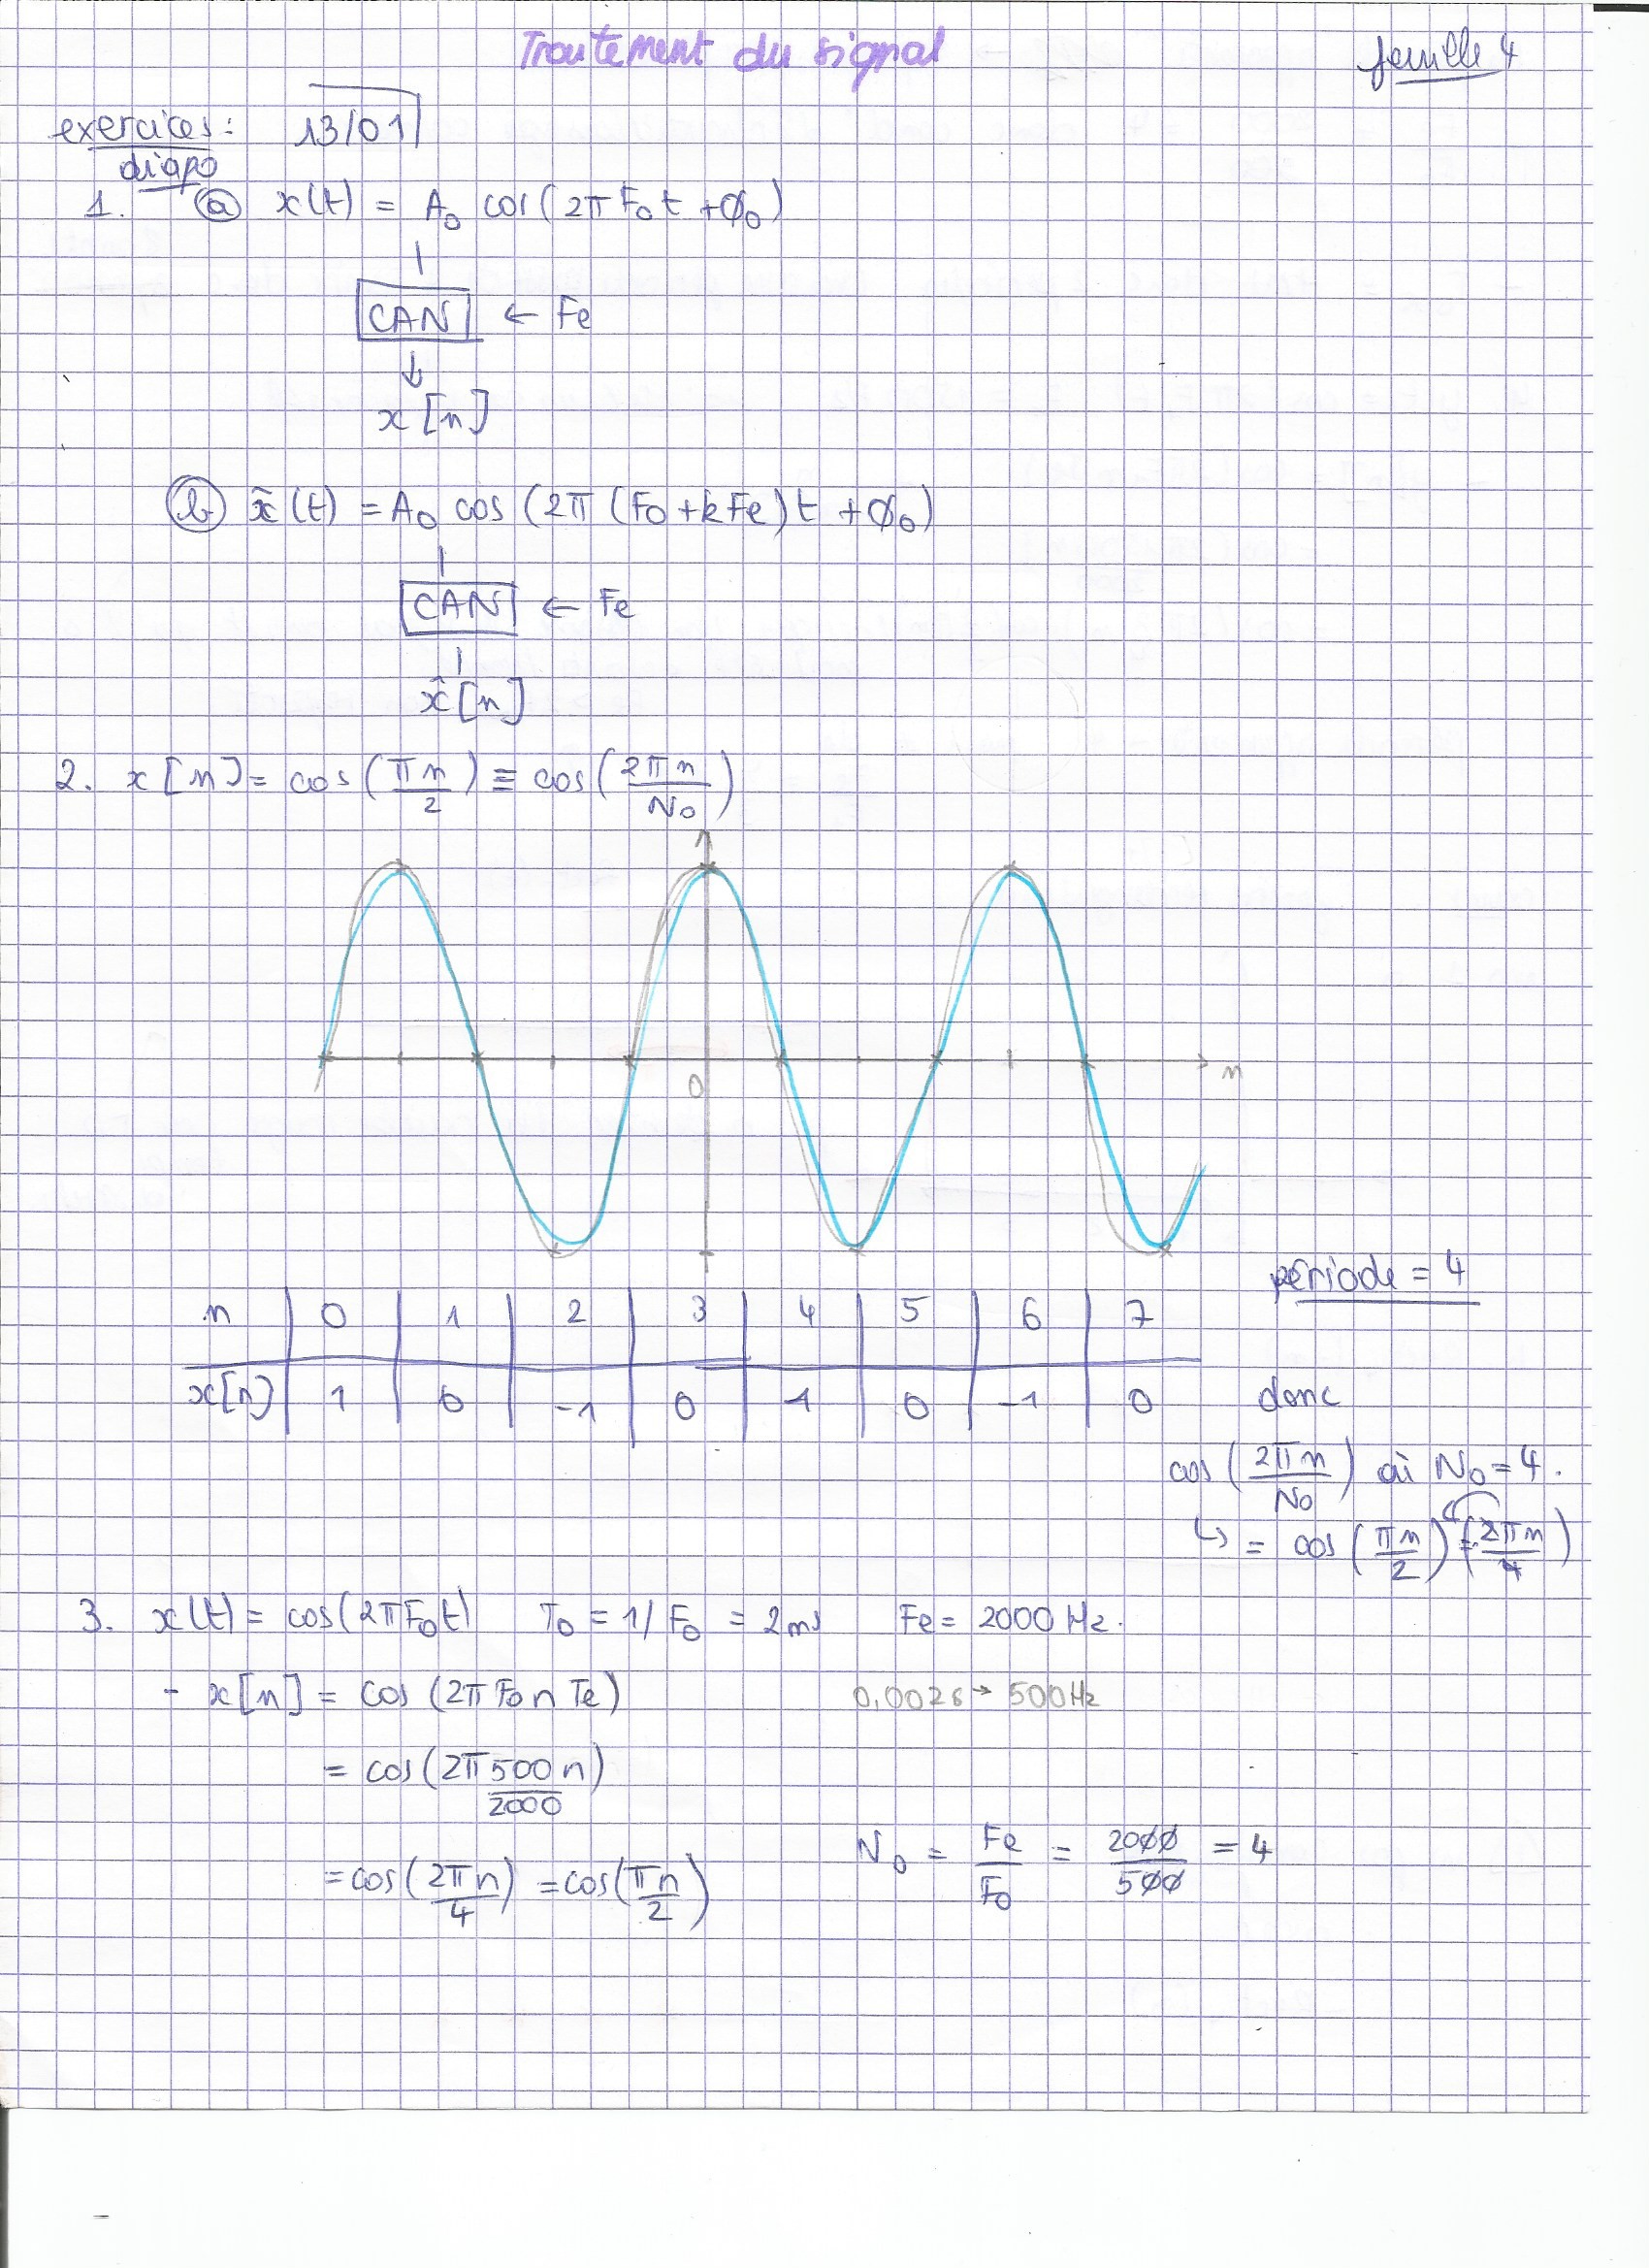 Traitement du signal
feuille 4
exercices: 13/01
diapo
1. ⓐ x(t) = A₀ cos(2π F₀ t + φ₀)
CAN ← Fe
↓
x[n]
ⓑ x̃(t) = A₀ cos(2π(F₀ + kFe)t + φ₀)
CAN ← Fe
x̃[n]
2. x[n] = cos(πn/2) ≡ cos(2πn/N₀)
0 n
période = 4
n 0 1 2 3 4 5 6 7
x[n] 1 0 -1 0 1 0 -1 0 donc
cos(2πn/N₀) où N₀ = 4.
↳ = cos(πn/2) = (2πn/4)
3. x(t) = cos(2πF₀t) T₀ = 1/F₀ = 2ms Fe = 2000 Hz.
- x[n] = cos(2πF₀nTe) 0,002s → 500Hz
= cos(2π 500/2000 n)
= cos(2πn/4) = cos(πn/2) N₀ = Fe/F₀ = 2000/500 = 4